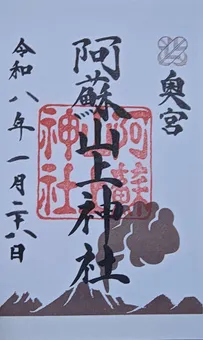 奥宮
阿蘇山上神社
阿蘇
山上
神社
令和八年一月二十八日